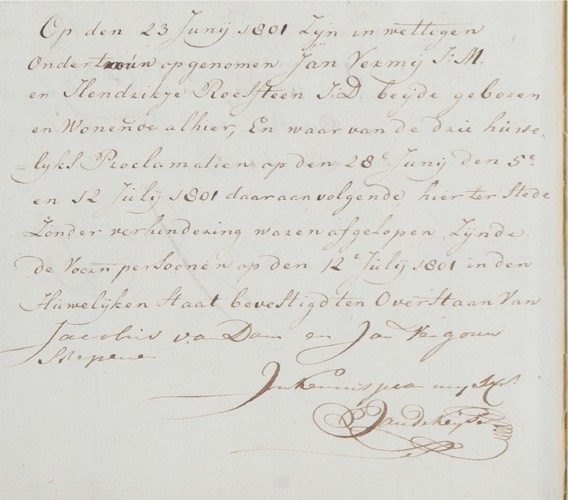 Op den 23 Junij 1801 Zijn in wettegen
Ondertrouw opgenomen Jan Vermij J:M.
en Hendrikje Roefsteen J:D. beijde geboren
en Wonende alhier, En waar van de drie huwe-
-lijks Proclamatien op den 28e Junij den 5e
en 12 Julij 1801 daaraanvolgende hier ter Stede
Zonder verhindering waren afgelopen Zijnde
de Voorn persoonen op den 12e Julij 1801 in den
Huwelijken Staat bevestigd ten Overstaan Van
Jacobus van Dam en Jan Vergouw
Schepene
In kennisse van mij